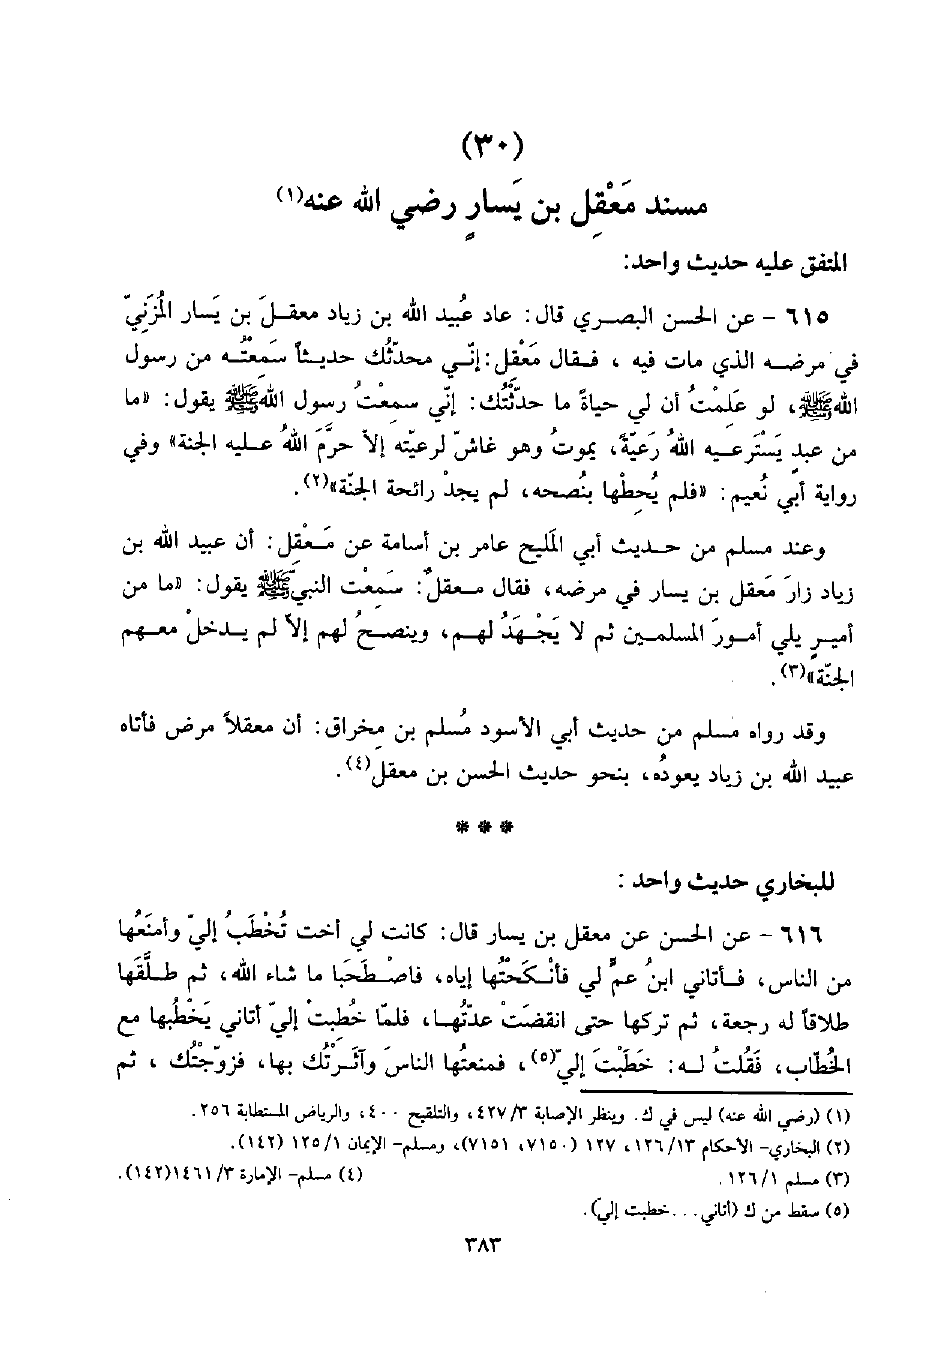 (٣٠)
مسند مَعْقِل بن يَسارٍ رضي الله عنه(١)
المتفق عليه حديث واحد:
٦١٥ – عن الحسن البصري قال: عاد عُبيد الله بن زياد معقلَ بن يَسار المُزَنيّ
في مرضه الذي مات فيه ، فقال مَعْقِل: إنّي محدّثُك حديثاً سَمِعْتُه من رسول
اللهﷺ، لو عَلِمْتُ أن لي حياةً ما حدّثْتُك: إنّي سمعْتُ رسول اللهﷺ يقول: «ما
من عبدٍ يَسْتَرعيه اللهُ رَعيّةً، يموتُ وهو غاشّ لرعيّته إلاّ حرَّمَ اللهُ عليه الجنة» وفي
رواية أبي نُعيم: «فلم يُحِطْها بنُصحه، لم يجدْ رائحة الجنّة»(٢).
وعند مسلم من حديث أبي المليح عامر بن أسامة عن مَعْقِل: أن عبيد الله بن
زياد زارَ مَعقل بن يسار في مرضه، فقال معقلٌ: سَمِعْت النبيّﷺ يقول: «ما من
أميرٍ يلي أمورَ المسلمين ثم لا يَجْهَدُ لهم، وينصحُ لهم إلاّ لم يدخلْ معهم
الجنّة»(٣).
وقد رواه مسلم من حديث أبي الأسود مُسلم بن مخراق: أن معقلاً مرض فأتاه
عبيد الله بن زياد يعودُه، بنحو حديث الحسن بن معقل(٤).
***
للبخاري حديث واحد :
٦١٦ – عن الحسن عن معقل بن يسار قال: كانت لي أخت تُخْطَبُ إليّ وأمنَعُها
من الناس، فأتاني ابنُ عمٍّ لي فأنْكَحْتُها إياه، فاصْطَحَبَا ما شاء الله، ثم طلَّقَها
طلاقاً له رجعة، ثم تركها حتى انقضَت عدّتُها، فلمّا خُطِبتْ إليّ أتاني يَخْطُبها مع
الخُطّاب، فَقُلتُ له: خَطَبْتَ إليّ(٥)، فمنعتُها الناسَ وآثَرْتُك بها، فزوّجْتُك ، ثم
(١) (رضي الله عنه) ليس في ك. وينظر الإصابة ٤٢٧/٣، والتلقيح ٤٠٠، والرياض المستطابة ٢٥٦.
(٢) البخاري- الأحكام ١٢٦/١٣، ١٢٧ (٧١٥٠، ٧١٥١)، ومسلم- الإيمان ١٢٥/١ (١٤٢).
(٣) مسلم ١٢٦/١. (٤) مسلم- الإمارة ١٤٦١/٣(١٤٢).
(٥) سقط من ك (أتاني...خطبت إليّ).
٣٨٣